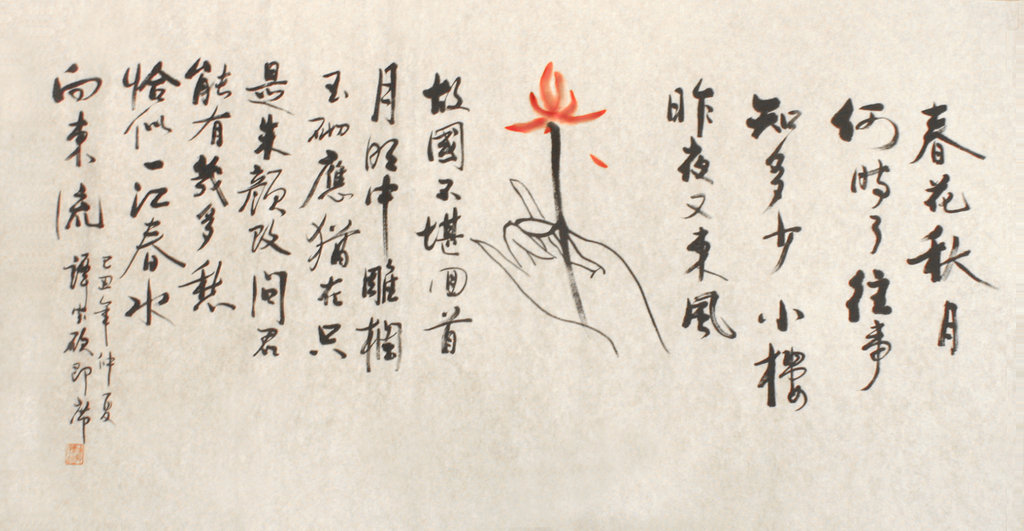 春花秋月
何時了往事
知多少小樓
昨夜又東風
故國不堪回首
月明中雕欄
玉砌應猶在只
是朱顏改問君
能有幾多愁
恰似一江春水
向東流
己丑年仲夏
譚 碩即席